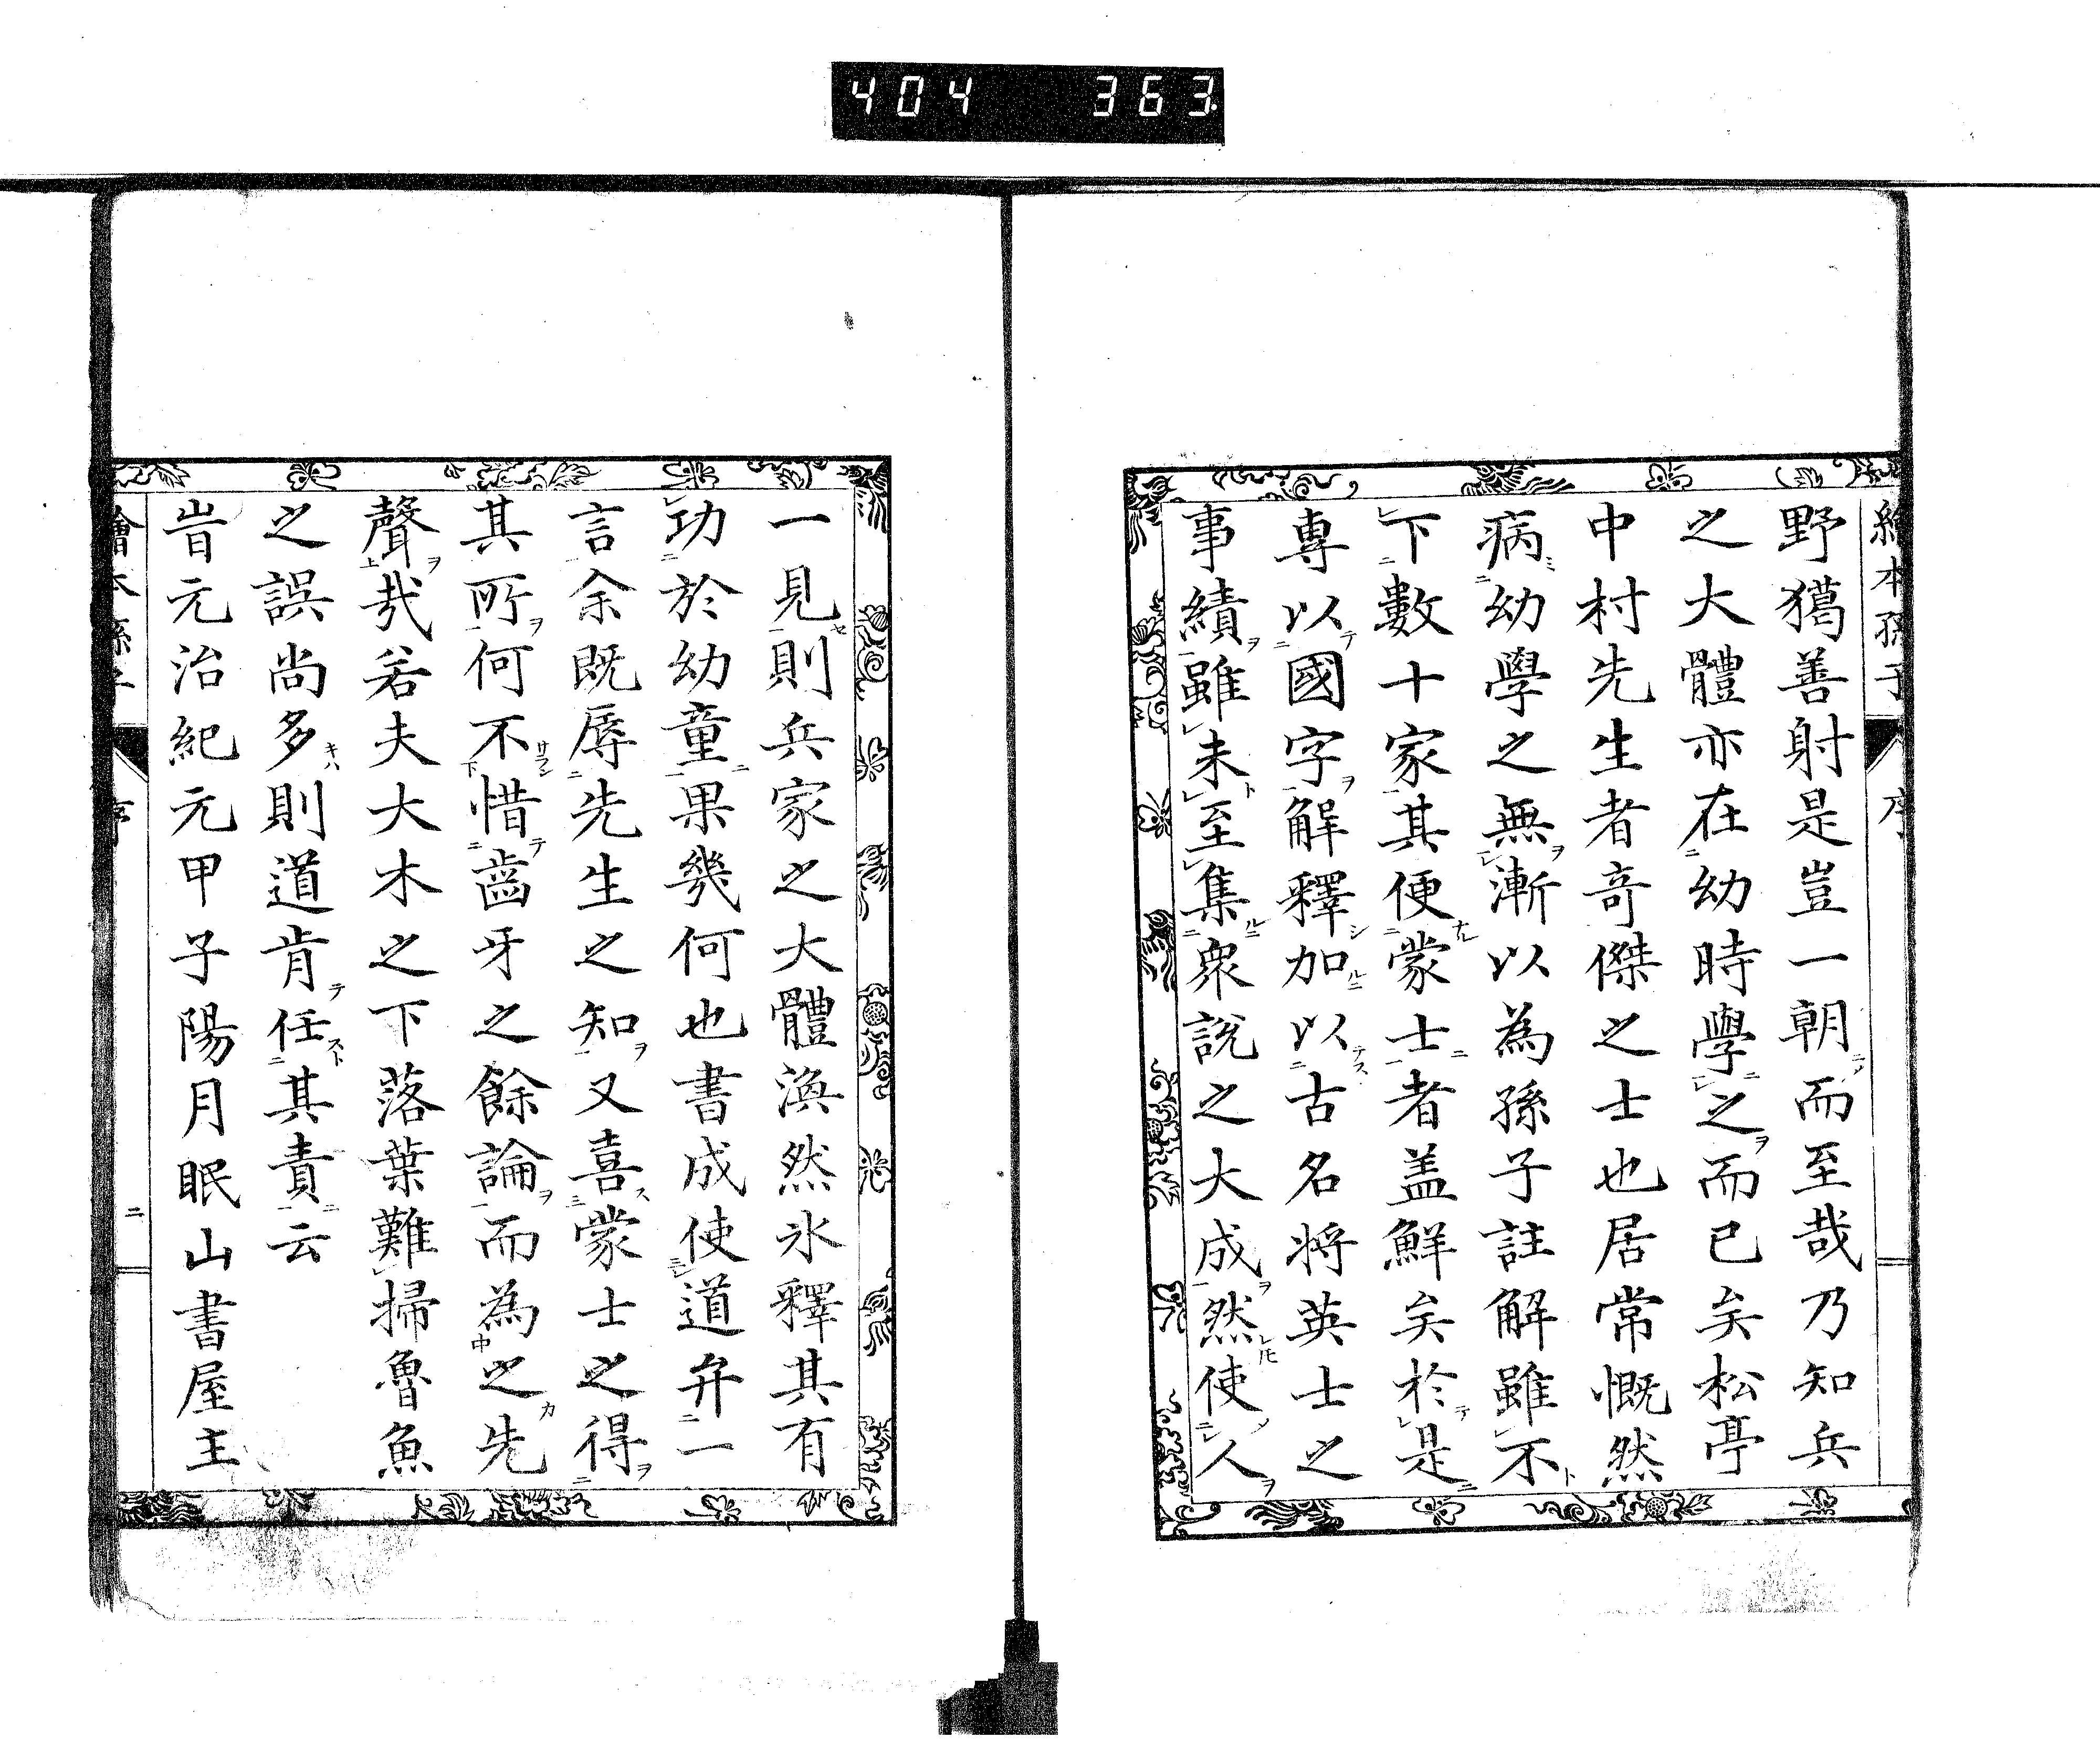 404 363
繪本孫子 序
野獦善射是豈一朝而至哉乃知兵
之大體亦在幼時學之而已矣松亭
中村先生者竒傑之士也居常慨然
病幼學之無漸以為孫子註解雖不
下數十家其便蒙士者盖鮮矣於是
專以國字解釋加以古名将英士之
事績雖未至集衆說之大成然使人
一見則兵家之大體渙然氷釋其有
功於幼童果幾何也書成使道弁一
言余既辱先生之知又喜蒙士之得
其所何不惜齒牙之餘論而為之先
聲哉若夫大木之下落葉難掃魯魚
之誤尚多則道肯任其責云
旹元治紀元甲子陽月眠山書屋主
繪本孫子 序 二